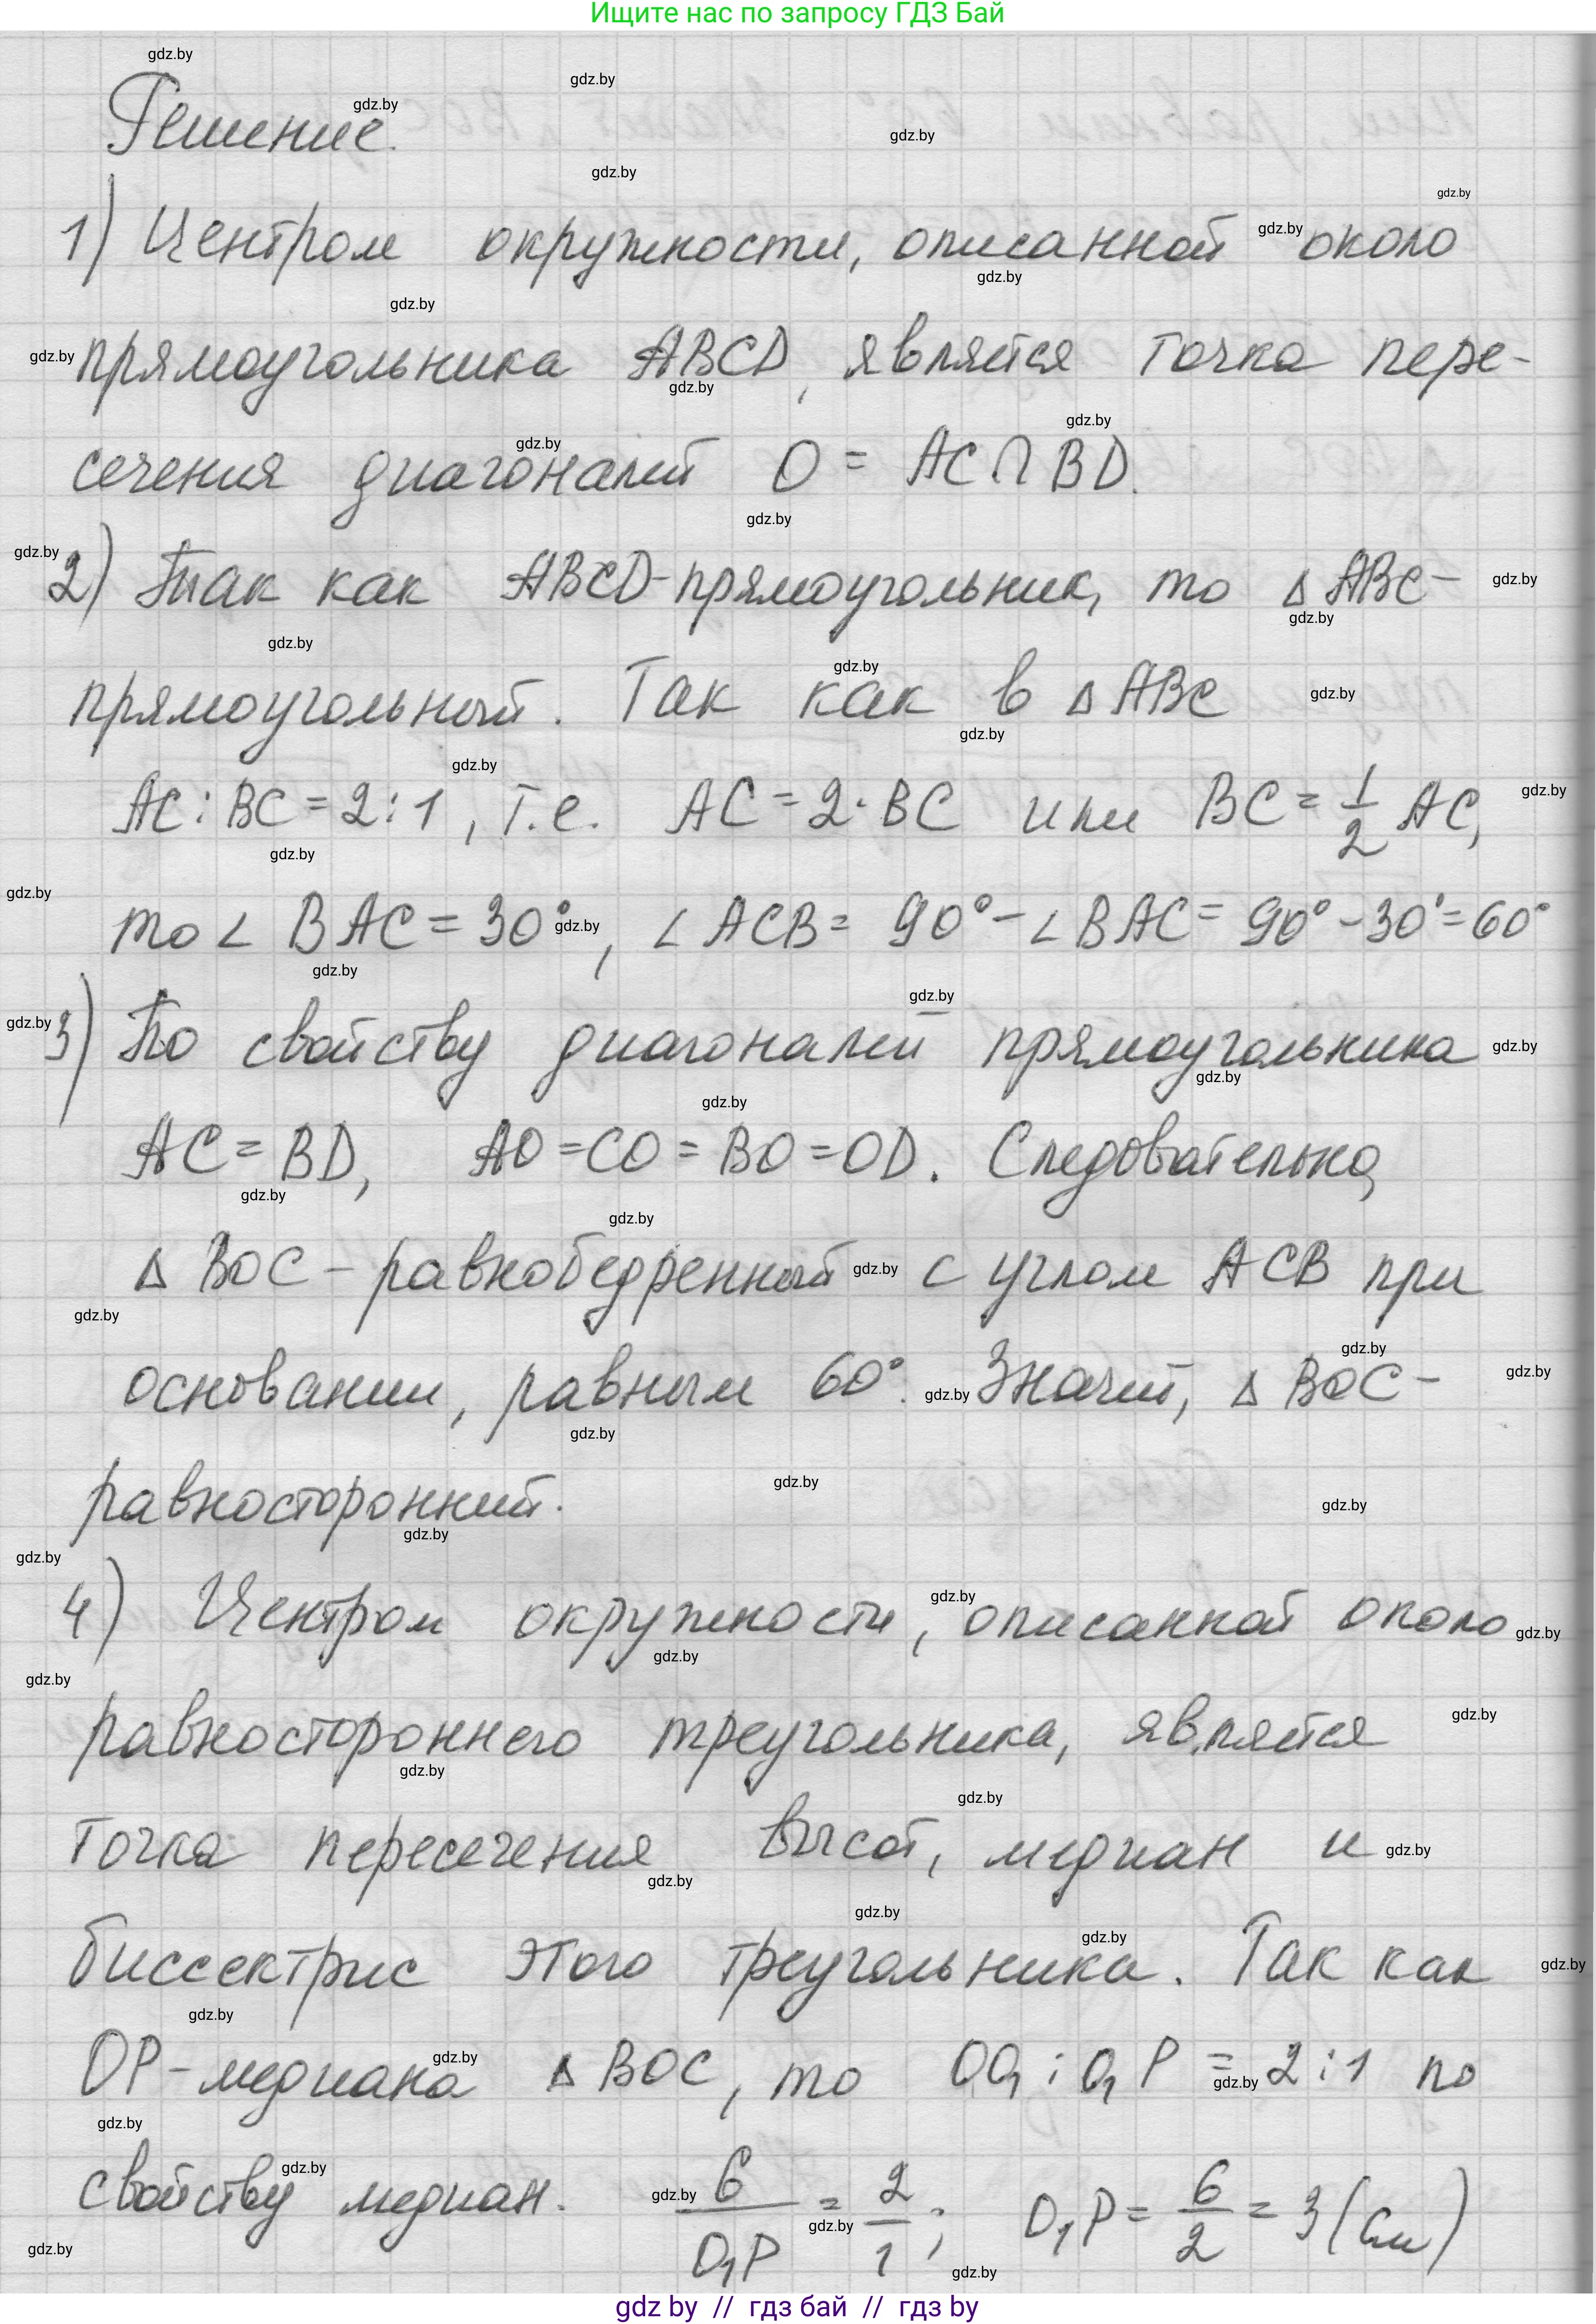 Ищите нас по запросу ГДЗ Бай
Решение.
1) Центром окружности, описанной около
прямоугольника ABCD, является точка пере-
сечения диагоналей O = AC∩BD.
2) Так как ABCD-прямоугольник, то △ABC-
прямоугольный. Так как в △ABC
AC:BC=2:1, т.е. AC=2·BC или BC=1/2 AC,
то ∠BAC=30°, ∠ACB=90°-∠BAC=90°-30°=60°
3) По свойству диагоналей прямоугольника
AC=BD, AO=CO=BO=OD. Следовательно,
△BOC-равнобедренный с углом ACB при
основании, равным 60°. Значит, △BOC-
равносторонний.
4) Центром окружности, описанной около
равностороннего треугольника, является
точка пересечения высот, медиан и
биссектрис этого треугольника. Так как
OP-медиана △BOC, то OO₁:O₁P=2:1 по
свойству медиан. 6/O₁P=2/1; O₁P=6/2=3(см)
gdz by // гдз бай // гдз by